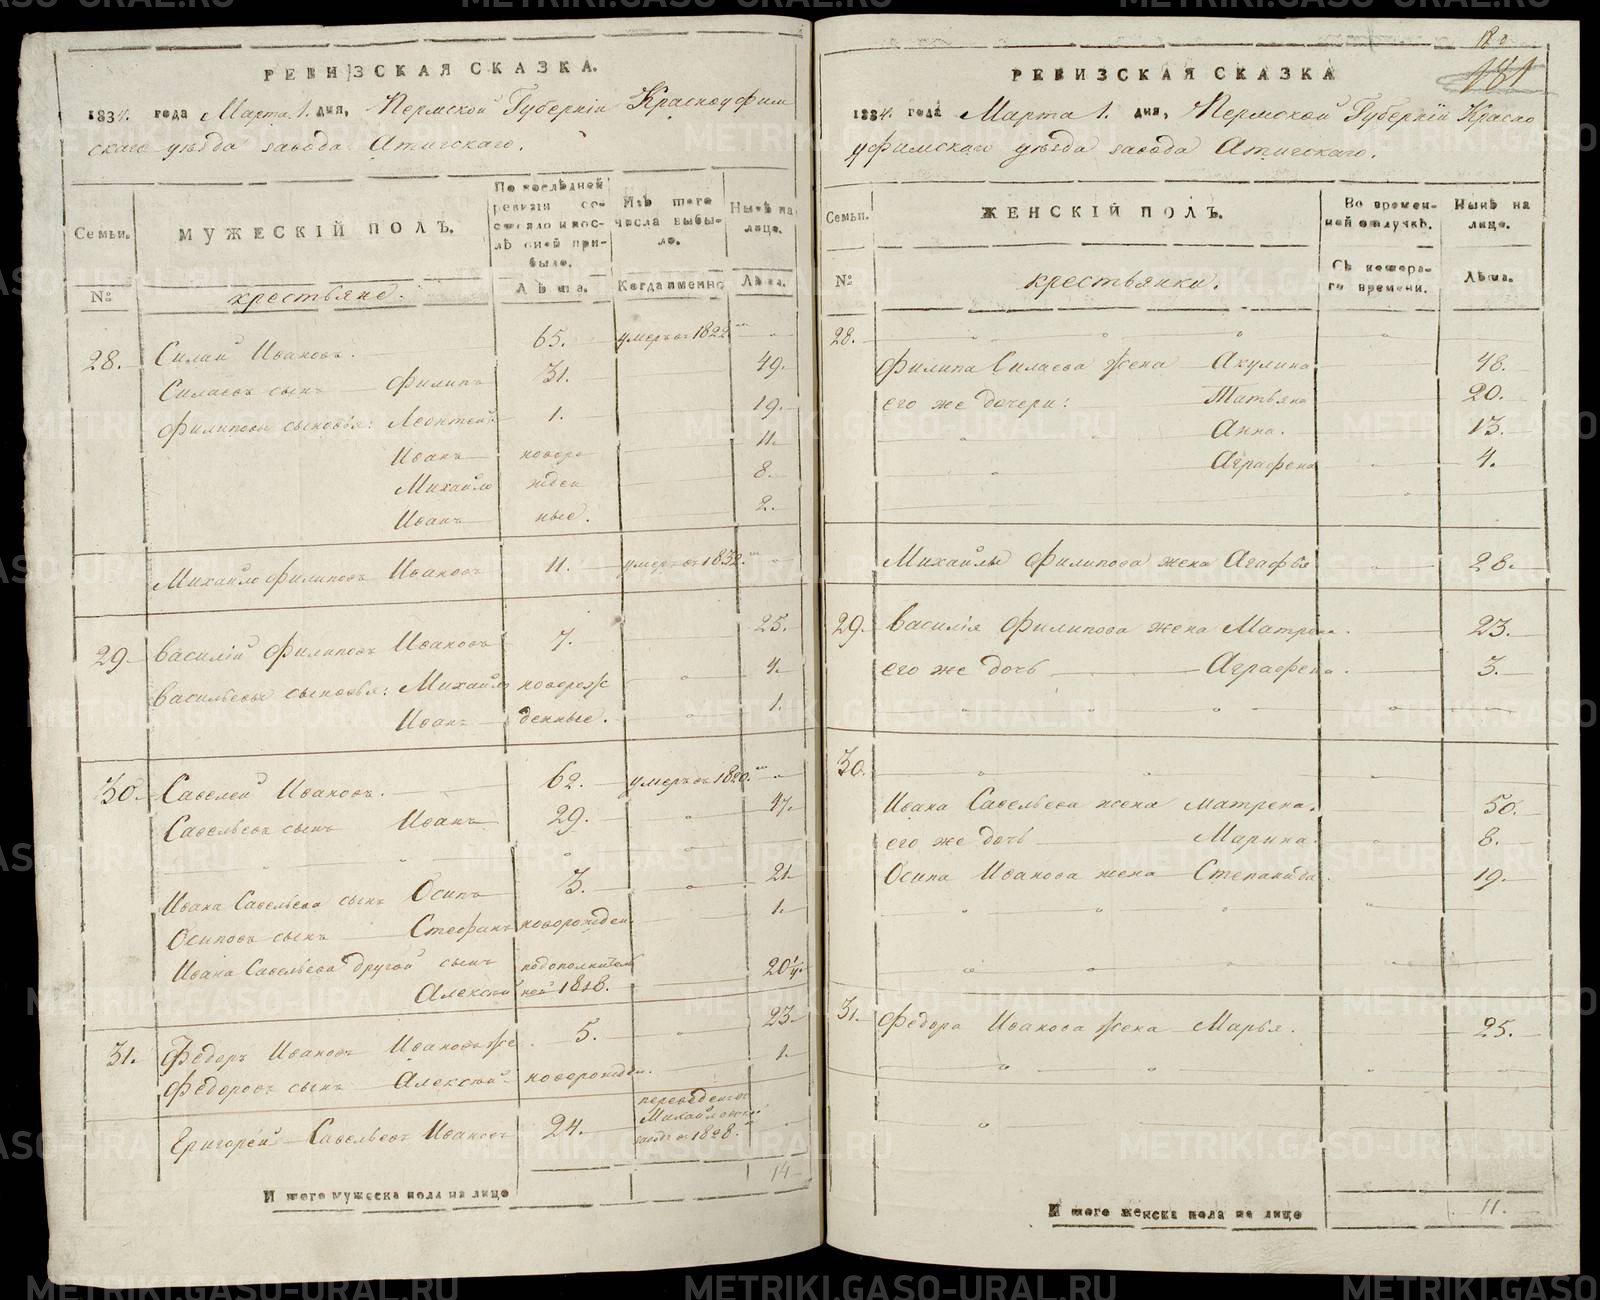 РЕВИЗСКАЯ СКАЗКА.
1834. года Марта 1. дня, Пермской Губерніи Красноуфим
скаго уѣзда завода Атигскаго.
Семьи.
МУЖЕСКІЙ ПОЛЪ.
По послѣдней ревизіи состояло и послѣ оной прибыло.
Изъ того числа выбыло.
Нынѣ на лице.
№
крестьяне.
Лѣта.
Когда именно
Лѣта.
28. Силай Ивановъ. 65. умеръ въ 1822
Силаевъ сынъ Филипъ 31. 49.
Филиповы сыновья: Леонтей 1. 19.
Иванъ новоро 11.
Михайло жден 8.
Иванъ ные. 2.
Михайло Филиповъ Ивановъ 11. умеръ въ 1832.
29. Василій Филиповъ Ивановъ 7. 25.
Васильевы сыновья: Михайло поворож 4.
Иванъ денные. 1.
30. Савелей Ивановъ. 62. умеръ въ 1820.
Савельевъ сынъ Иванъ 29. 47.
Ивана Савельева сынъ Осипъ 3. 21
Осиповъ сынъ Стефанъ новорожден. 1.
Ивана Савельева другой сынъ подополнитель
Алексѣй ной 1818. 20 1/4
31. Федоръ Ивановъ Ивановъ же 5. 23
Федоровъ сынъ Алексѣй новорожден. 1.
Григорей Савельевъ Ивановъ 24. переведенъ въ Михайловской заводъ въ 1828.
Итого мужеска пола на лице 14
180
181
РЕВИЗСКАЯ СКАЗКА
1834. года Марта 1. дня, Пермской Губерніи Красно
уфимскаго уѣзда завода Атигскаго.
Семьи.
ЖЕНСКІЙ ПОЛЪ.
Во временной отлучкѣ.
Нынѣ на лице.
№
крестьянки.
Съ котораго времени.
Лѣта.
28.
Филипа Силаева жена Акулина 48.
его же дочери: Татьяна 20.
Анна. 13.
Аграфена 4.
Михайлы Филипова жена Агафья 28.
29. Василія Филипова жена Матрена. 23.
его же дочь Аграфена. 3.
30.
Ивана Савельева жена Матрена. 50.
его же дочь Марина. 8.
Осипа Иванова жена Степанида. 19.
31. Федора Иванова жена Марья. 25.
Итого женска пола на лице 11.
METRIKI.GASO-URAL.RU